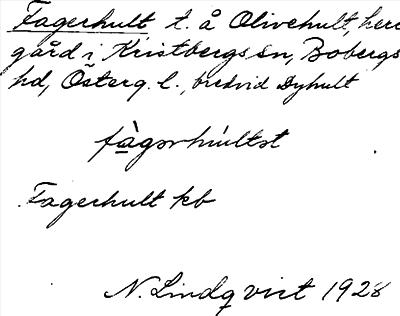 Fagerhult t. å Olivehult, herr
gård i Kristbergs sn, Bobergs
hd, Österg. l., bredvid Dyhult
fàgərhúltət
Fagerhult kb
N. Lindqvist 1928